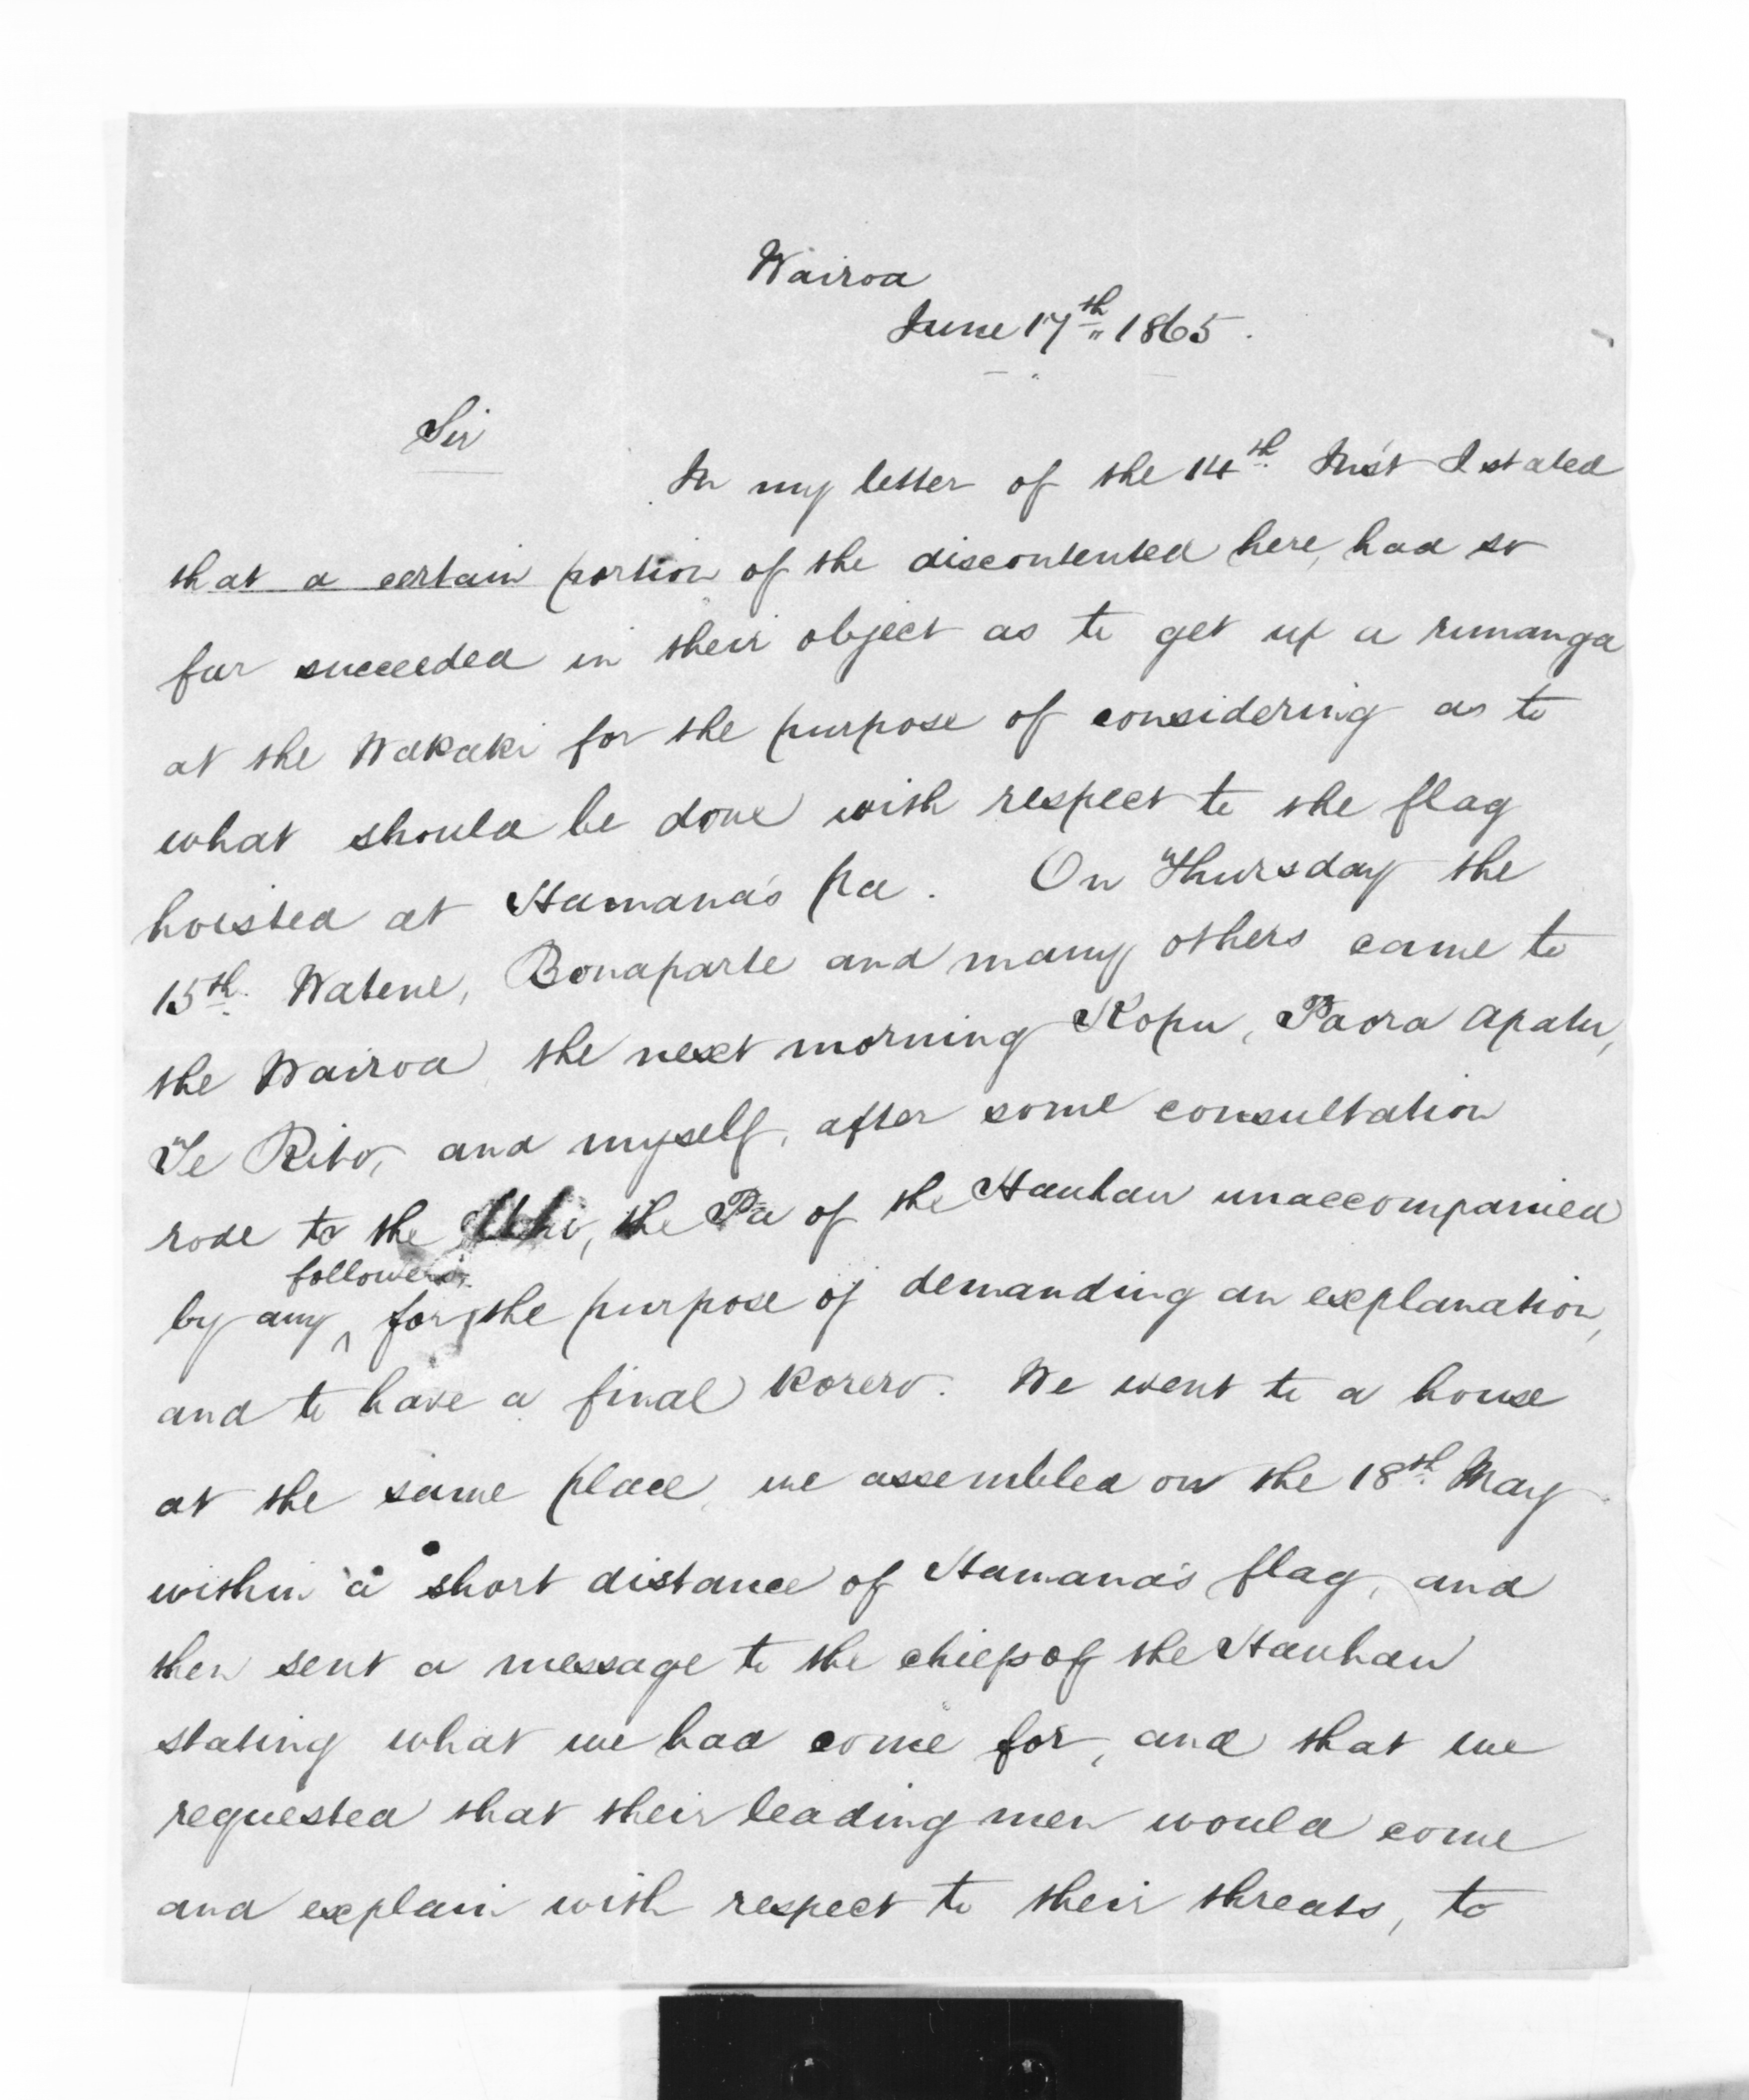 Wairoa
June 17th 1865.
Sir
In my letter of the 14th Inst I stated
that a certain portion of the discontented here, had so
far succeeded in their object as to get up a runanga
at the Wakaki for the purpose of considering as to
what should be done with respect to the flag
hoisted at Hamana's pa. On Thursday the
15th. Watene, Bonaparte and many others came to
the Wairoa, the next morning Kopu, Paora Apatu,
Te Rito, and myself, after some consultation
rode to the Uhi, the Pa of the Hauhau unaccompanied
followers.
by any ^ for the purpose of demanding an explanation,
and to have a final korero. We went to a house
at the same place, we assembled on the 18th May
within a short distance of Hamana's flag, and
then sent a message to the chiefs of the Hauhau
stating what we had come for, and that we
requested that their leading men would come
and explain with respect to their threats, to